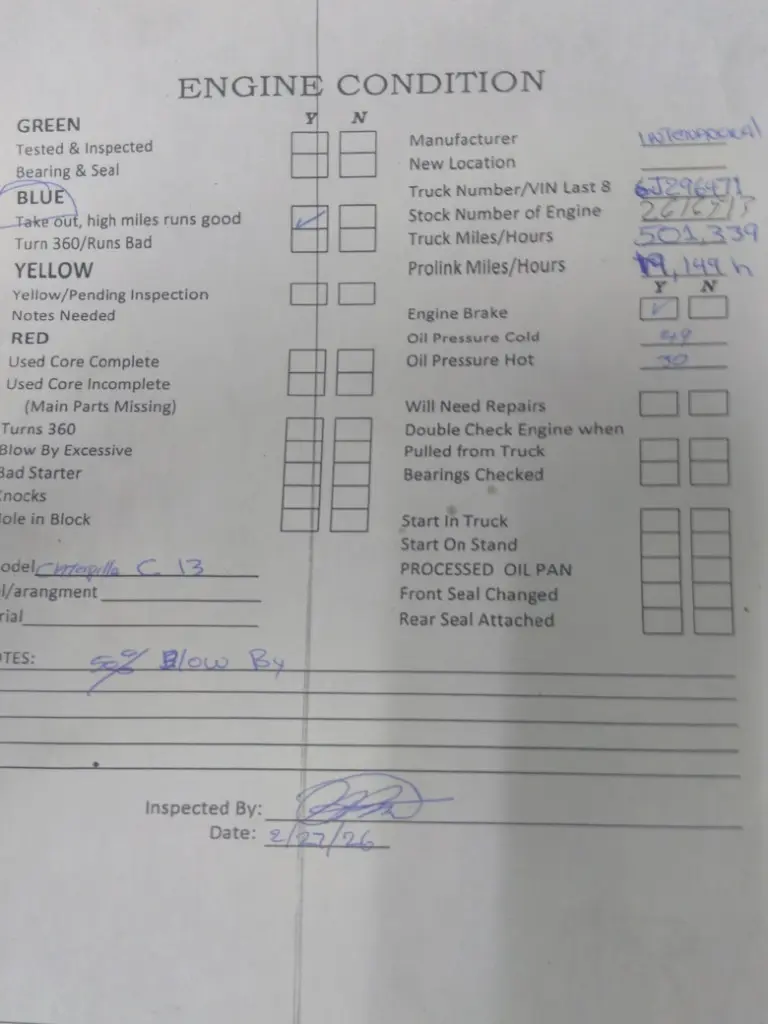 ENGINE CONDITION
Y N
GREEN
Tested & Inspected
Bearing & Seal
BLUE
Take out, high miles runs good
Turn 360/Runs Bad
YELLOW
Yellow/Pending Inspection
Notes Needed
RED
Used Core Complete
Used Core Incomplete
(Main Parts Missing)
Turns 360
Blow By Excessive
Bad Starter
Knocks
ole in Block
odel Caterpilla C 13
l/arangment
rial
Manufacturer
New Location
Truck Number/VIN Last 8 6J296471
Stock Number of Engine
Truck Miles/Hours 501,339
Prolink Miles/Hours 19,149 h
Y N
Engine Brake
Oil Pressure Cold 49
Oil Pressure Hot 30
Will Need Repairs
Double Check Engine when
Pulled from Truck
Bearings Checked
Start In Truck
Start On Stand
PROCESSED OIL PAN
Front Seal Changed
Rear Seal Attached
OTES: 50% Blow By
Inspected By:
Date: 2/27/26